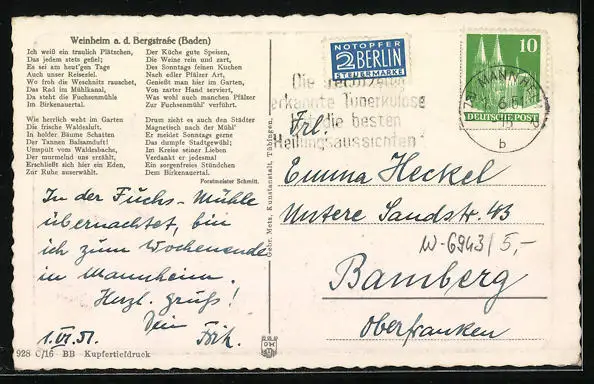 Weinheim a. d. Bergstraße (Baden)
Ich weiß ein traulich Plätzchen,
Das jedem stets gefiel;
Es sei am heut'gen Tage
Auch unser Reiseziel.
Wo froh die Weschnitz rauschet,
Das Rad im Mühlkanal,
Da steht die Fuchsenmühle
Im Birkenauertal.
Wie herrlich weht im Garten
Die frische Waldesluft,
In holder Bäume Schatten
Der Tannen Balsamduft!
Umspült vom Waldesbache,
Der murmelnd uns erzählt,
Erschließt sich hier ein Eden,
Zur Ruhe auserwählt.
Der Küche gute Speisen,
Die Weine rein und zart,
Des Sonntags feinen Kuchen
Nach edler Pfälzer Art,
Genießt man hier im Garten,
Von zarter Hand serviert,
Was wohl auch manchen Pfälzer
Zur Fuchsmühl' verführt.
Drum zieht es auch den Städter
Magnetisch nach der Mühl'
Er meidet Sonntags gerne
Das dumpfe Stadtgewühl;
Im Kreise seiner Lieben
Verdankt er jedesmal
Ein sorgenfreies Stündchen
Dem Birkenauertal.
Forstmeister Schmitt.
In der Fuchs-Mühle
übernachtet, bin
ich zum Wochenende
in Mannheim.
Herzl. Gruß!
Dein
1.VI.51.
928 C/16 BB Kupfertiefdruck
Gebr. Metz, Kunstanstalt, Tübingen.
NOTOPFER
2 BERLIN
STEUERMARKE
Die rechtzeitig
erkannte Tuberkulose
hat die besten
Heilungsaussichten
10
DEUTSCHE POST
MANNHEIM
b
Frl.
Emma Heckel
Untere Sandstr. 43
W-6943/5,-
Bamberg
Oberfranken